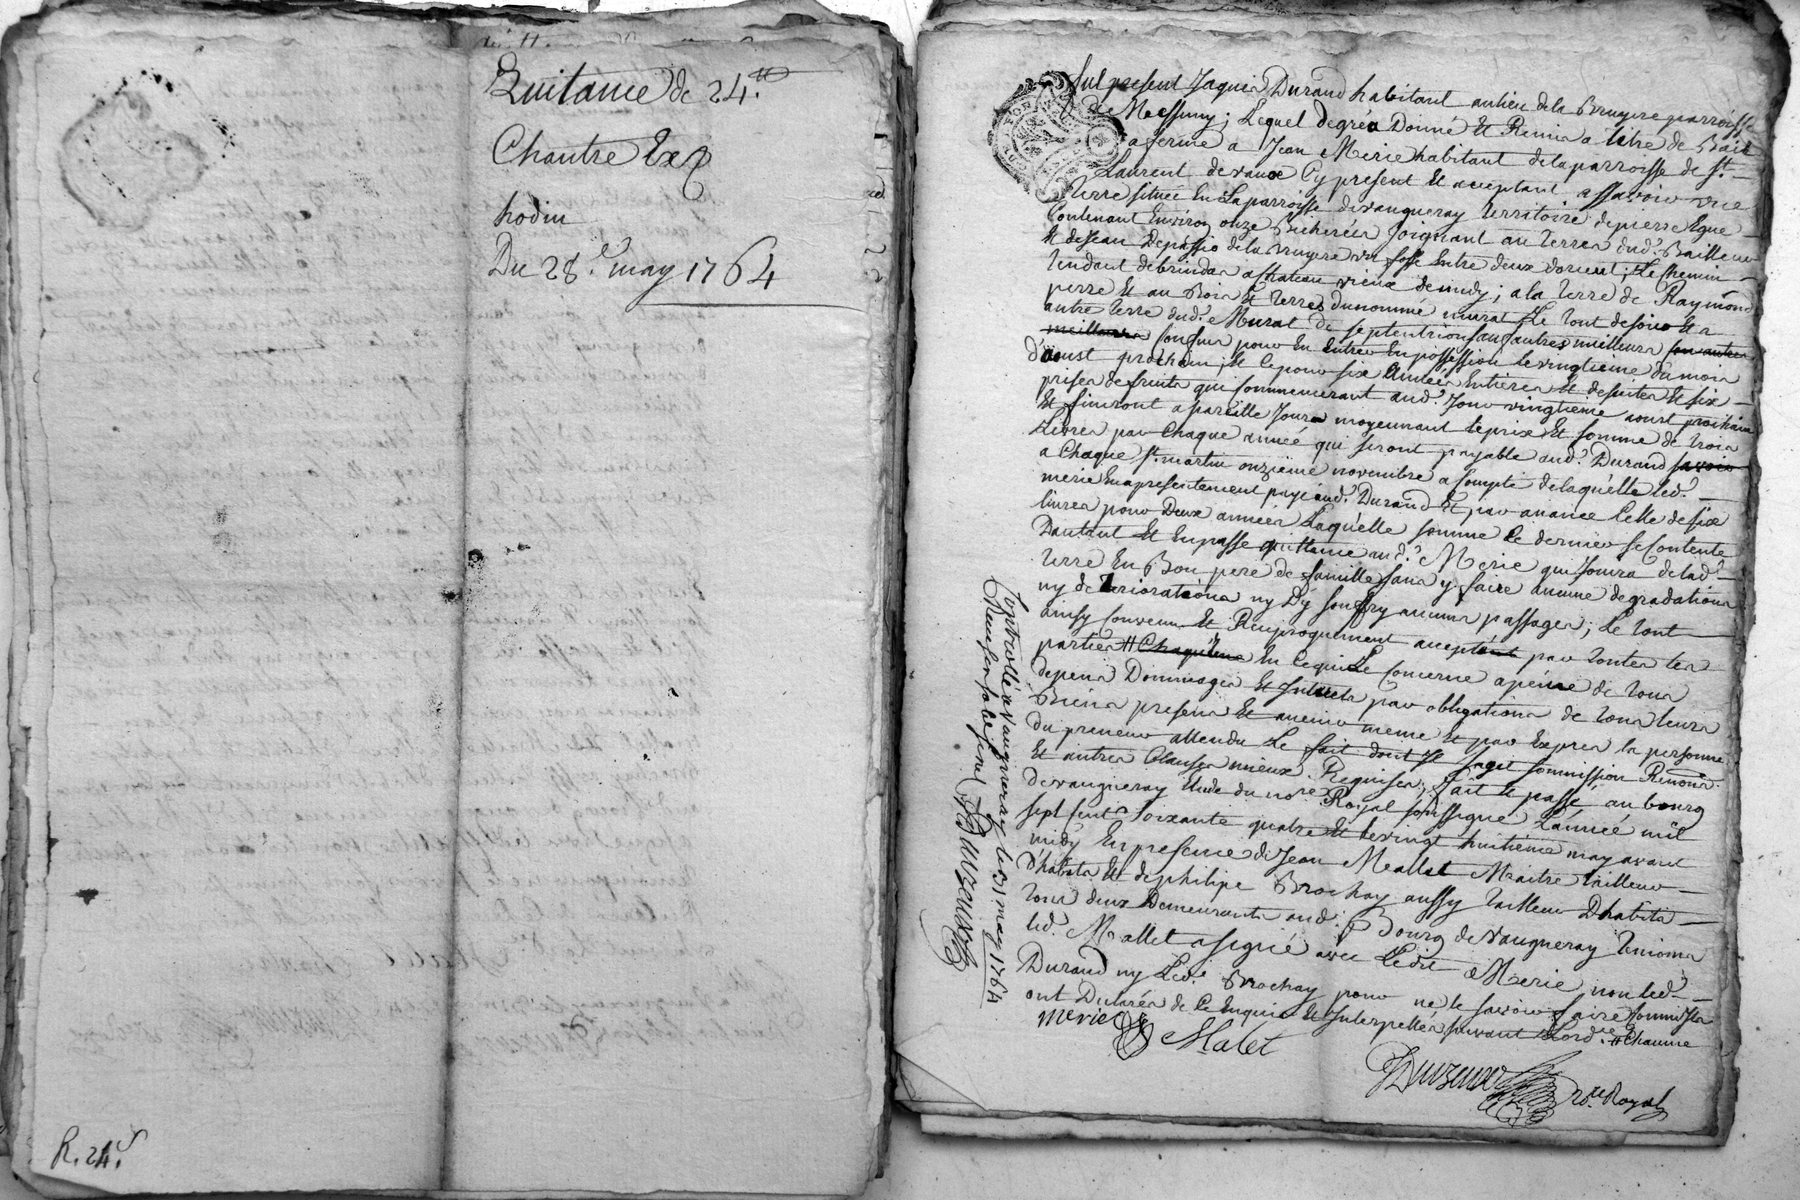 Quitance de 24.tt
Chautre Ex
hodin
Du 28.e may 1764
R. 24.s
fut present Jaques Durand habitant au lieu de la Bruyere parroisse
de Messimy; Lequel de gréa Donné et Remis a titre de Bail
a ferme a Jean Merie habitant de la parroisse de St.
Laurent de vaux Cy present et aceptant assavoir une
terre située En La parroisse de vaugneray territoire de pierre Egue
Contenant Environ onze Bicherées Joignant au terres dud.t Bailleur
et de Jean Depassio de la Bruyere un fossé Entre deux d'orient; Le Chemin
tendant de brindas a Chateau vieux de midy; a la terre de Raymond
perre et au Bois et terres du nommé murat Le Tout de soir et a
autre terre dud.t Murat de septentrion sauf autres meilleurs
Confins pour En Entrer En possession Le vingtieme du mois
d'aoust prochain, Et Ce pour six Années Entieres Et de suites Et six
prises de fruits qui Commenceront aud.t Jour vingtieme aoust prochain
Et finiront a pareille Jours moyennant le prix Et somme de trois
Livres par Chaque année qui seront payable aud.t Durand
a Chaque St. martin onzieme novembre a Compte de laquelle led.t
merie En a presentement payé aud.t Durand Et par avance Celle de six
livres pour Deux années Laquelle somme Ce dernier se Contente
Dautant Et En passe quittance aud.t Merie qui Jouira de lad.t
terre En Bon pere de famille sans y faire aucune degradations
ny deteriorations ny Dy souffry aucuns passages; Le tout
ainsy Convenu Et Reciproquement accepté par toutes les
parties # En Ce qui Le Concerne a peine de tous
depens Dommages Et Interets par obligations de tous leurs
Biens presens Et avenir meme Et par Expres la personne
du preneur attendu Le fait dont Il sagit sommission Renon.on
Et autres Clauses mieux Requises, fait Et passé au bourg
de vaugneray Etude du no.re Royal soussigné L'année mil
sept Cent soixante quatre Et Le vingt huitieme may avant
midy En presence de Jean Mallet Maitre tailleur
d'habits Et de philipe Brochay aussy tailleur D'habits
tous deux Demeurants aud.t Bourg de vaugneray temoins
led.t Mallet a signé avec Ledit Merie non led.t
Durand ny Led.t Brochay pour ne le savoir faire Comme Ils
ont Declarés de Ce Enquis Et Interpellés suivant Lord.ce # Chacune
merie
Malet
Duvzeaux
no.re Royal
Controllé a vaugneray le 31 may 1764
Reçu